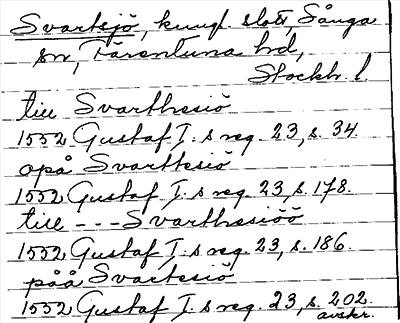 Svartsjö, kungl. slott, Sånga
sn, Färentuna hd,
Stockh. l.
till Svarthesiö
1552 Gustaf I.s reg. 23, s. 34.
opå Svarttesiö
1552 Gustaf I.s reg. 23, s. 178.
till --- Svarthesiöö
1552 Gustaf I.s reg. 23, s. 186.
påå Svartesiö
1552 Gustaf I.s reg. 23, s. 202.
avskr.